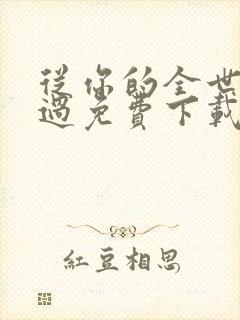 從你的全世
過免費下載
紅豆相思